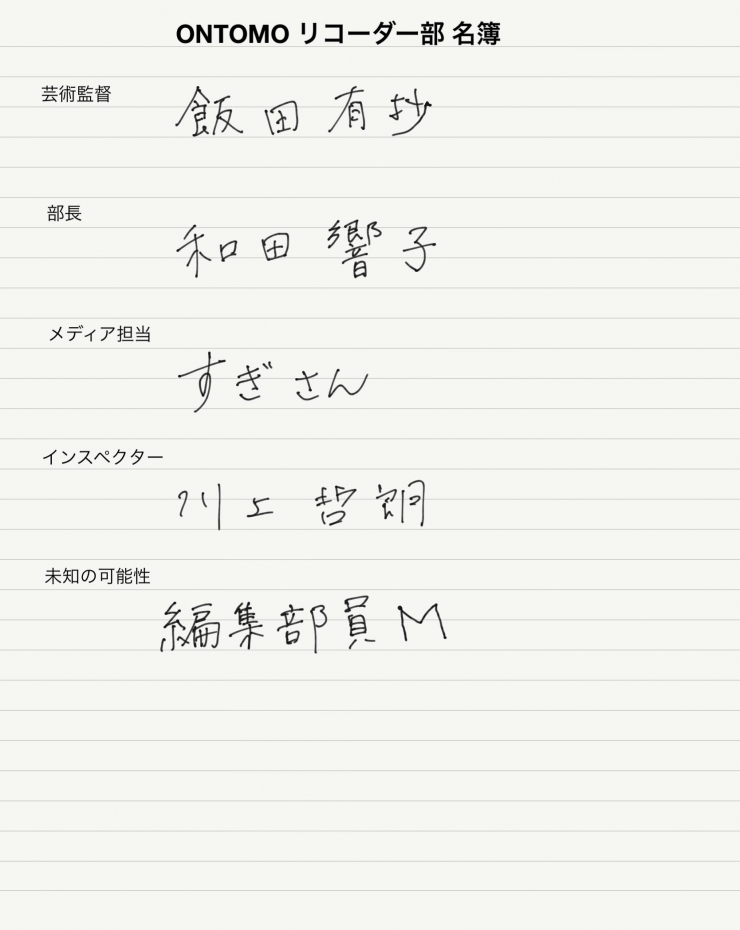 ONTOMO リコーダー部 名簿
芸術監督
飯田有抄
部長
和田響子
メディア担当
すぎさん
インスペクター
川上哲朗
未知の可能性
編集部員M